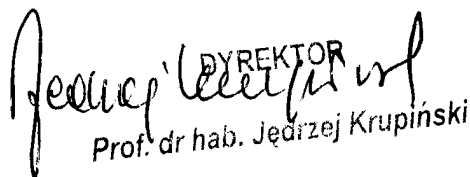 DYREKTOR
Prof. dr hab. Jędrzej Krupiński